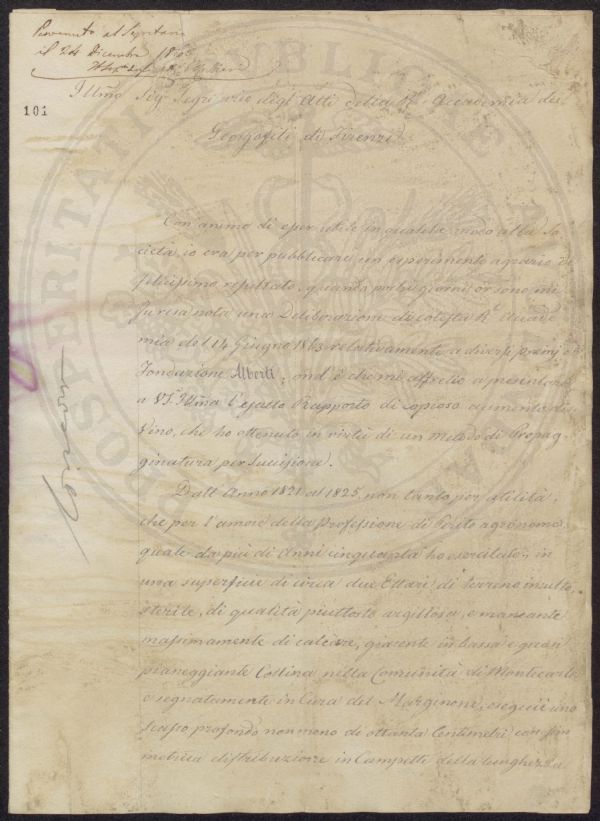 Pervenuto al Segretario
il 24 Dicembre 1863
101
Illmo Sigr Segretario degli Atti della R. Accademia dei
Georgofili di Firenze
Con animo di esser utile in qualche modo alla So
cietà, io era per pubblicare un esperimento agrario di
felicissimo resultato, quando pochi giorni or sono mi
fu resa nota una Deliberazione di cotesta Rl Accade
mia del 14 Giugno 1863 relativamente a diversi premj di
Fondazione Alberti; ond'è che mi affretto a presentare
a VS. Illma l'esatto Rapporto di copioso aumento di
Vino, che ho ottenuto in virtù di un metodo di Propag-
ginatura per Succisione.
Dall'Anno 1821 al 1825, non tanto per utilità,
che per l'amore della Professione di Perito agronomo,
quale da più di Anni cinquanta ho esercitato; in
una superficie di circa due Ettari di terreno inculto,
sterile, di qualità piuttosto argillosa, e mancante
massimamente di calcare, giacente in bassa e quasi
pianeggiante Collina nella Comunità di Montecarlo
e segnatamente in Cura del Marginone, eseguii uno
scasso profondo non meno di ottanta Centimetri con sim
metrica distribuzione in Campetti della lunghezza
PROSPERITATI PUBLICAE